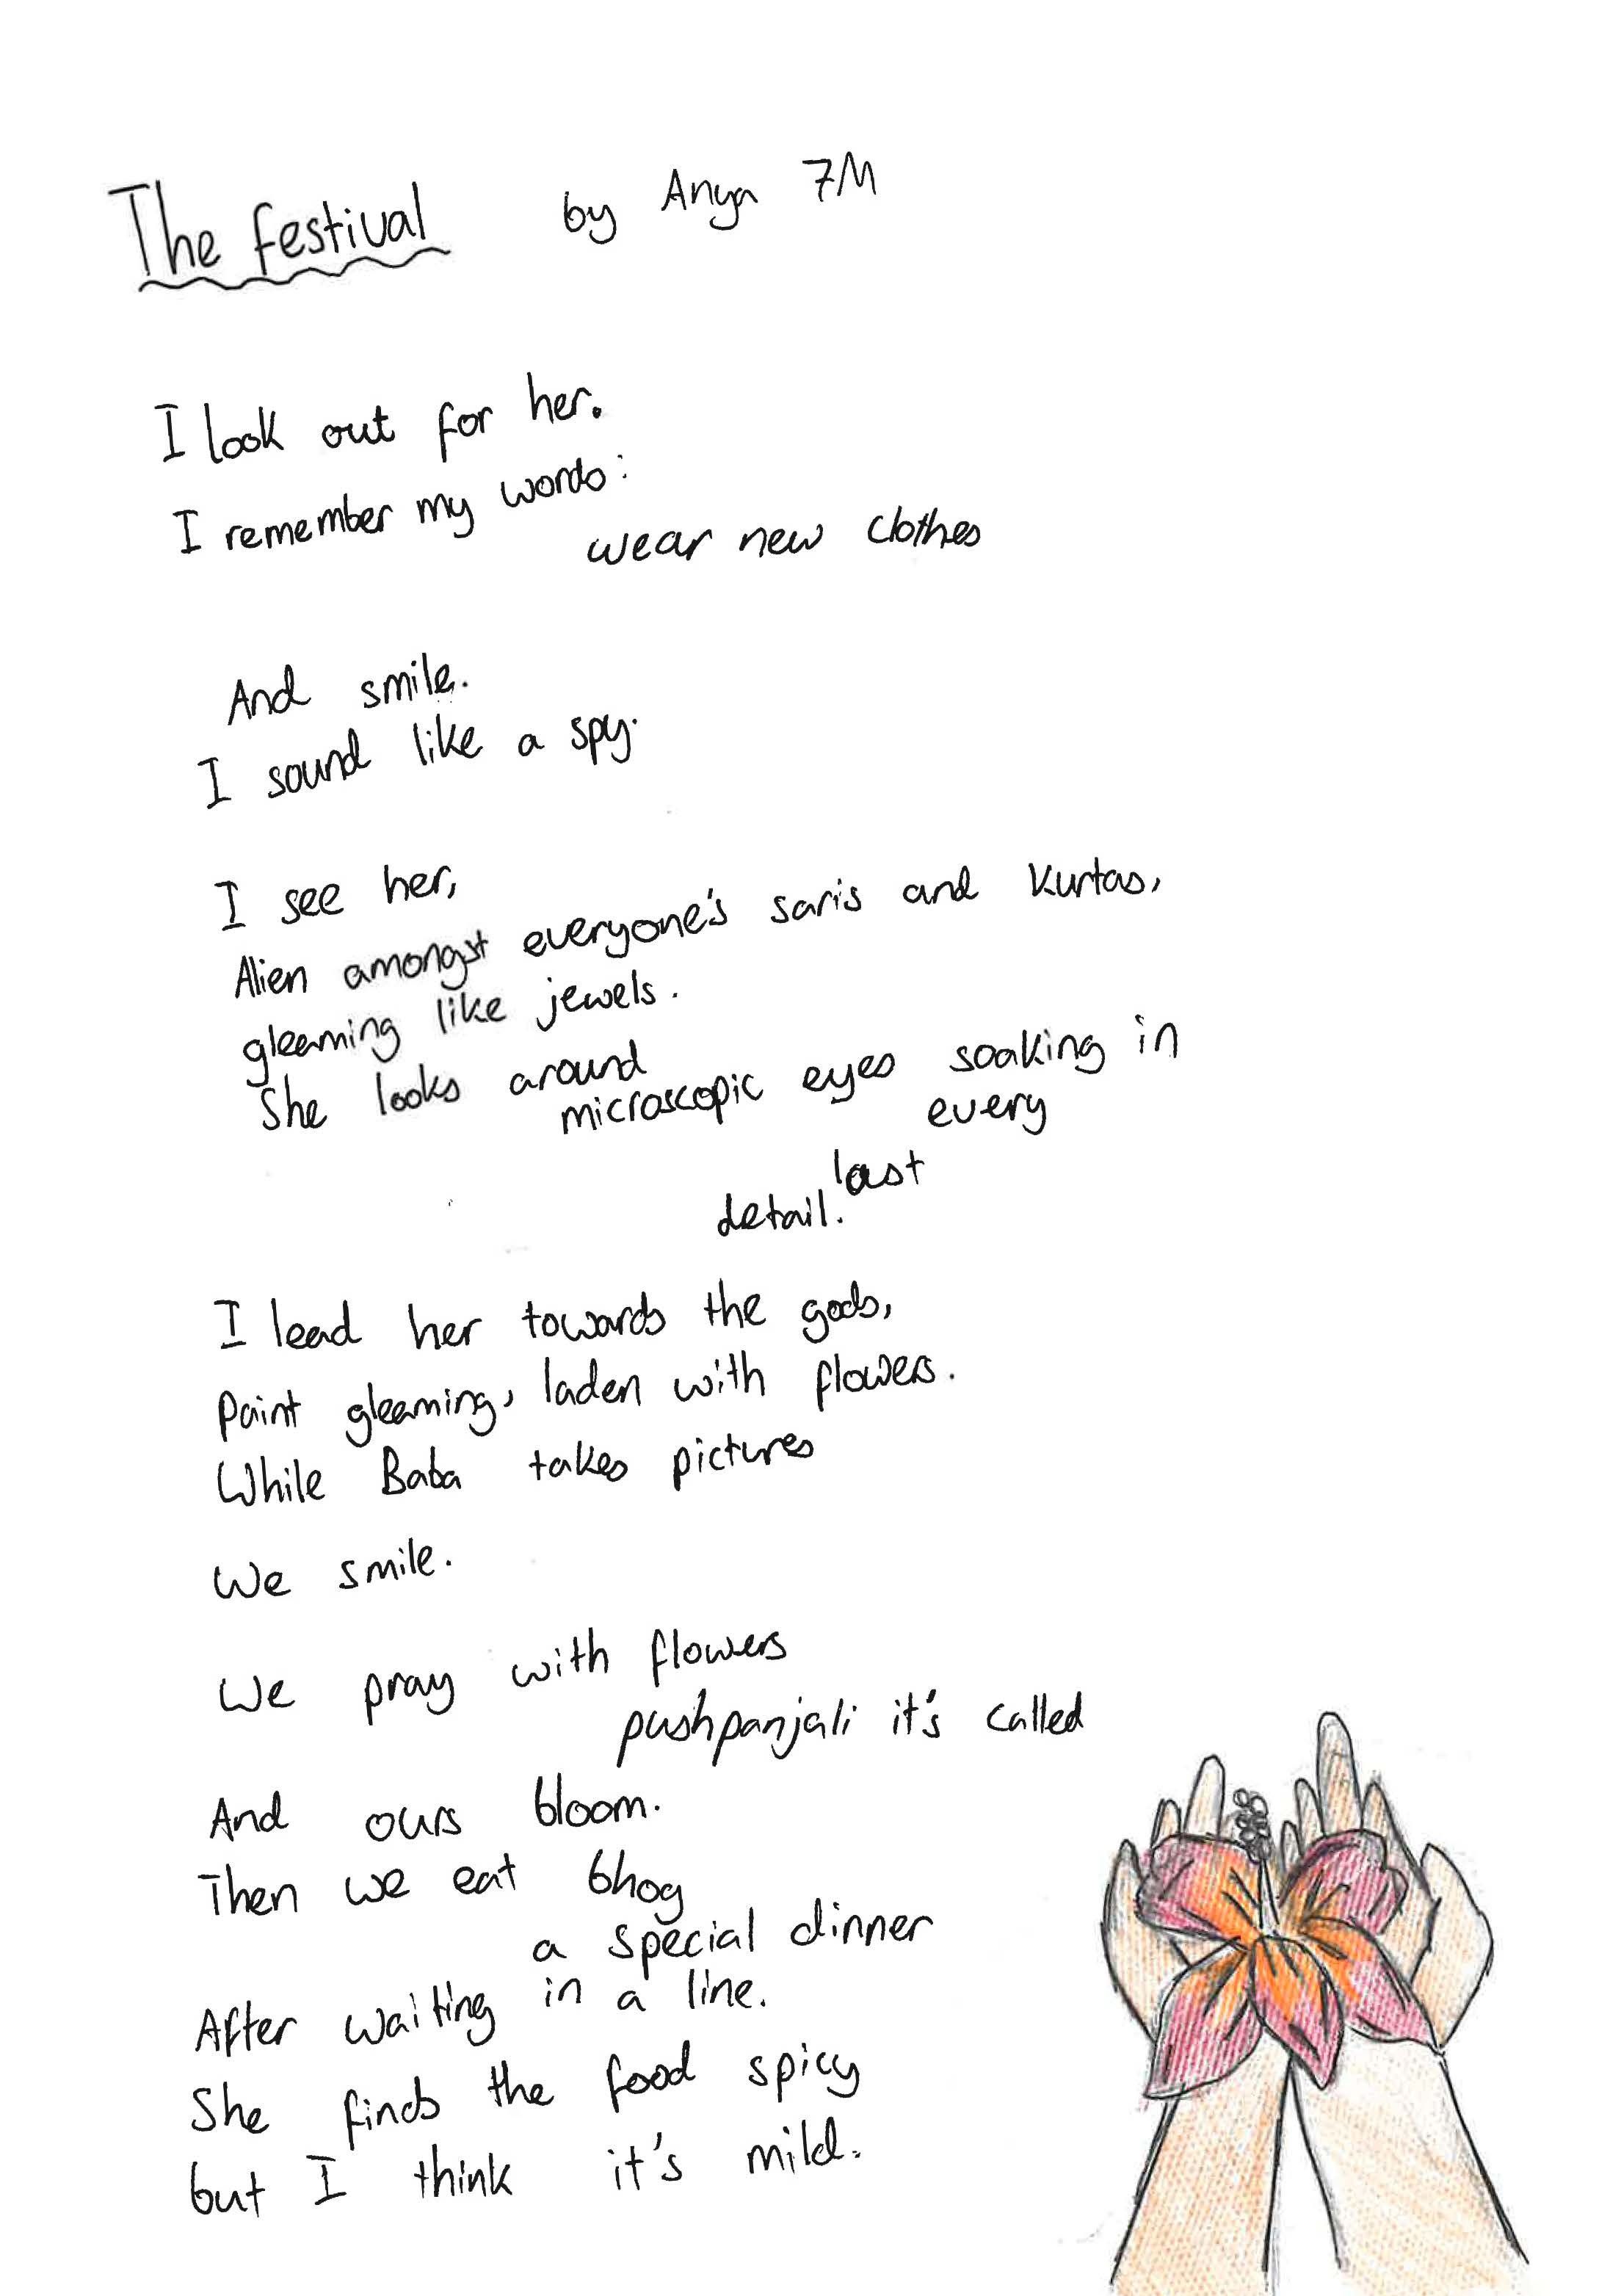 The festival by Anya 7M
I look out for her.
I remember my words:
wear new clothes
And smile.
I sound like a spy.
I see her,
Alien amongst everyone's saris and kurtas,
gleaming like jewels.
She looks around
microscopic eyes soaking in
every
last
detail.
I lead her towards the gods,
Paint gleaming, laden with flowers.
While Baba takes pictures
We smile.
We pray with flowers
pushpanjali it's called
And ours bloom.
Then we eat bhog
a special dinner
After waiting in a line.
She finds the food spicy
but I think it's mild.